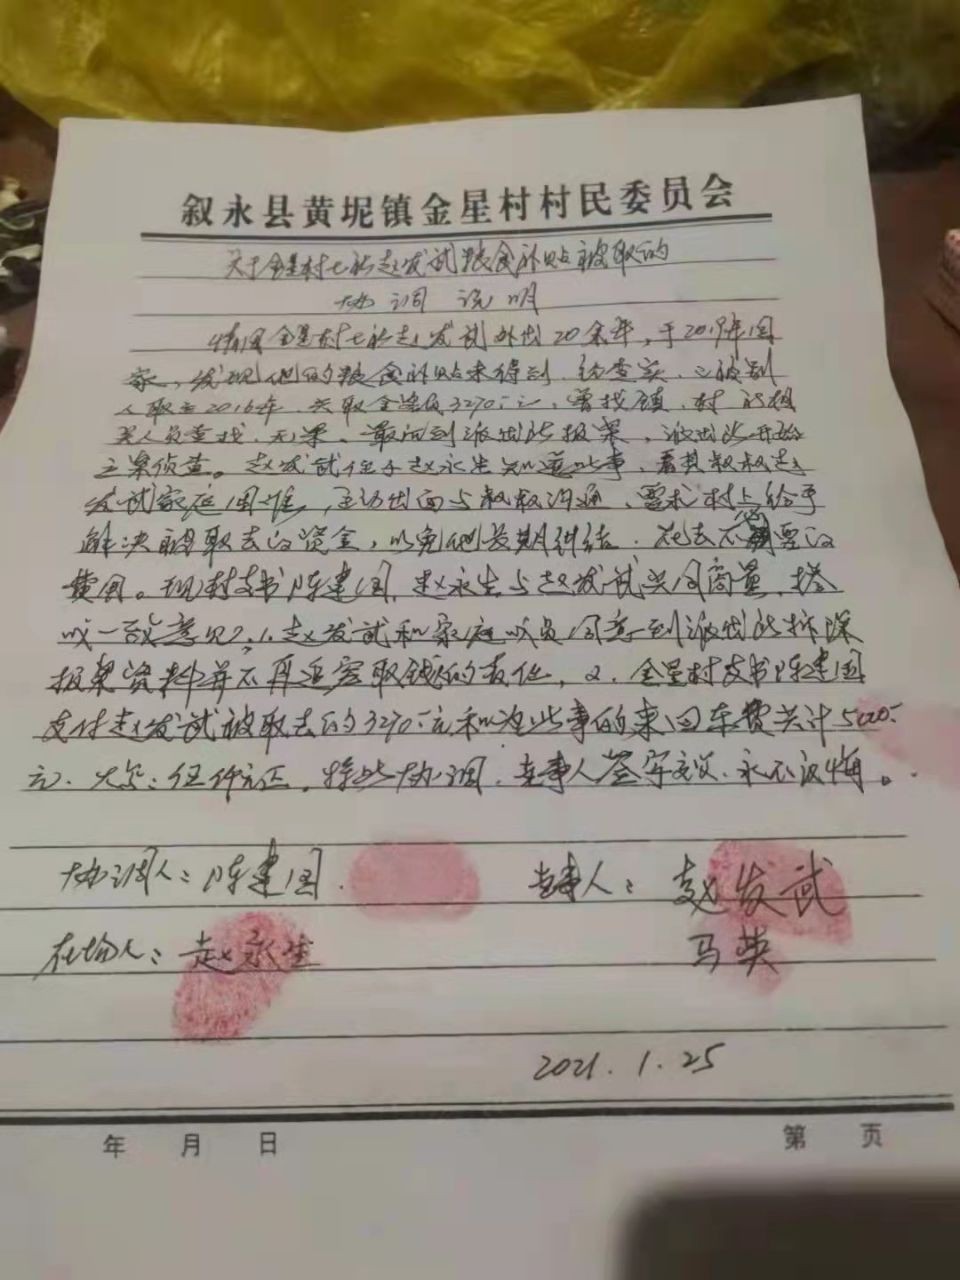 叙永县黄坭镇金星村村民委员会
关于金星村七社赵发武粮食补贴被取的
协调说明
情因金星村七社赵发武外出20余年，于2019年回
家，发现他的粮食补贴未得到，经查实，已被别
人取至2016年，共取金额伍3270元，曾找镇、村的相
关人员查找，无果。最后到派出所报案，派出所开始
立案侦查。赵发武侄子赵永生知道此事，看其叔叔赵
发武家庭困难，主动出面与叔叔沟通，要求村上给予
解决被取去的资金，以免他长期纠结，花去不必要的
费用。现村支书陈建国，赵永生与赵发武共同商量，搭
成一致意见，1.赵发武和家庭成员同意到派出所拆除
报案资料并不再追究取钱的责任，2.金星村支书陈建国
支付赵发武被取去的3270元和为此事的来回车费共计5000
元．大写：伍仟元正。特此协调，当事人签字交议，永不议悔。
协调人：陈建国
当事人：赵发武
在场人：赵永生
马英
2021.1.25
年 月 日
第 页